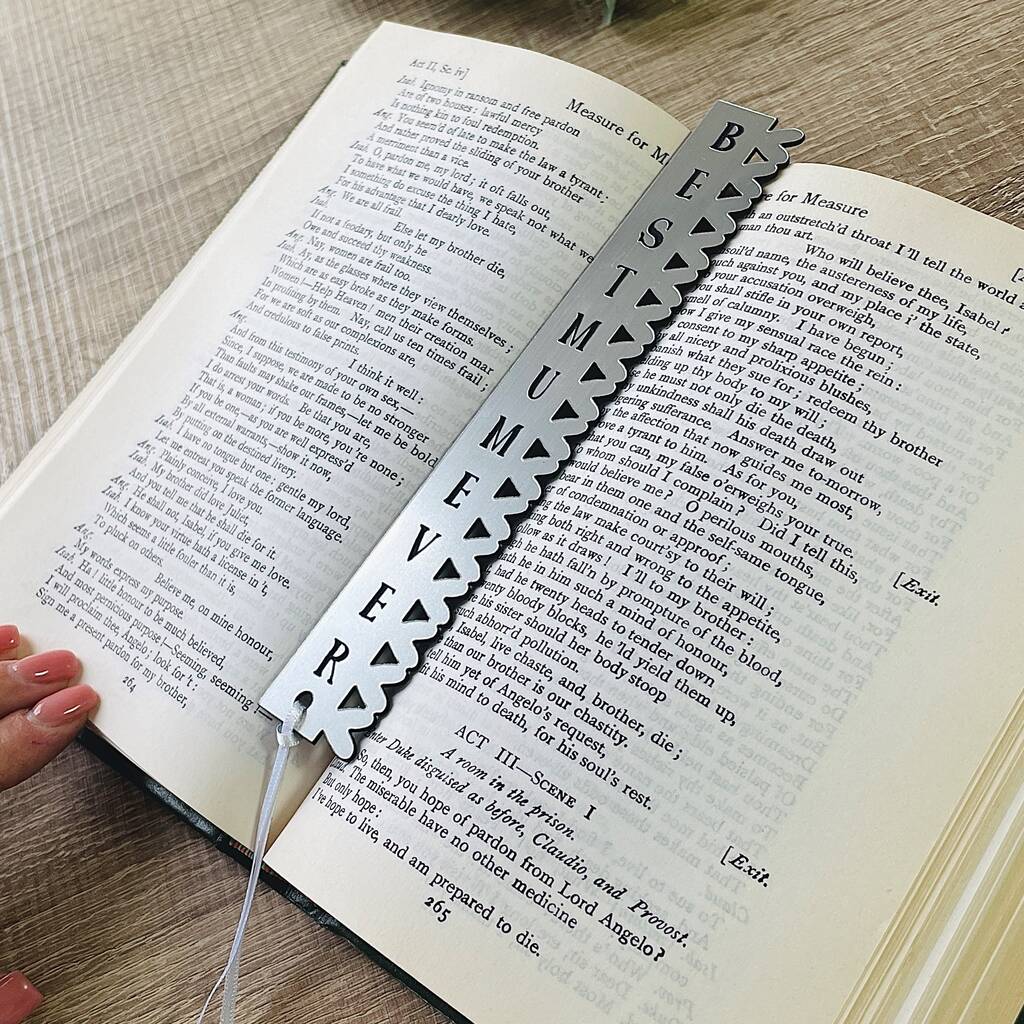 Act II, Sc. iv]
Measure for M
Isab. Ignomy in ransom and free pardon
Are of two houses: lawful mercy
Is nothing kin to foul redemption.
Ang. You seem'd of late to make the law a tyrant;
And rather proved the sliding of your brother
A merriment than a vice.
Isab. O, pardon me, my lord; it oft falls out,
To have what we would have, we speak not what we
I something do excuse the thing I hate,
For his advantage that I dearly love.
Ang. We are all frail.
Isab. Else let my brother die,
If not a feodary, but only he
Owe and succeed thy weakness.
Ang. Nay, women are frail too.
Isab. Ay, as the glasses where they view themselves;
Which are as easy broke as they make forms.
Women!—Help Heaven! men their creation mar
In profiting by them. Nay, call us ten times frail;
For we are soft as our complexions are,
And credulous to false prints.
Ang. I think it well:
And from this testimony of your own sex,—
Since, I suppose, we are made to be no stronger
Than faults may shake our frames,—let me be bold;
I do arrest your words. Be that you are,
That is, a woman; if you be more, you're none;
If you be one,—as you are well express'd
By all external warrants,—show it now,
By putting on the destined livery.
Isab. I have no tongue but one: gentle my lord,
Let me entreat you speak the former language.
Ang. Plainly conceive, I love you.
Isab. My brother did love Juliet,
And you tell me that he shall die for it.
Ang. He shall not, Isabel, if you give me love.
Isab. I know your virtue hath a license in't,
Which seems a little fouler than it is,
To pluck on others.
Ang. Believe me, on mine honour,
My words express my purpose.
Isab. Ha! little honour to be much believed,
And most pernicious purpose!—Seeming, seeming!
I will proclaim thee, Angelo; look for't:
Sign me a present pardon for my brother,
264
BEST MUM EVER
e for Measure
h an outstretch'd throat I'll tell the world
man thou art.
Who will believe thee, Isabel?
soil'd name, the austereness of my life,
uch against you, and my place i' the state,
your accusation overweigh,
ou shall stifle in your own report,
mell of calumny. I have begun;
w I give my sensual race the rein:
consent to my sharp appetite;
all nicety and prolixious blushes,
anish what they sue for; redeem thy brother
lding up thy body to my will;
e he must not only die the death,
unkindness shall his death draw out
gering sufferance. Answer me to-morrow,
the affection that now guides me most,
ove a tyrant to him. As for you,
hat you can, my false o'erweighs your true.
[Exit.
whom should I complain? Did I tell this,
would believe me? O perilous mouths,
bear in them one and the self-same tongue,
of condemnation or approof;
g the law make court'sy to their will;
ing both right and wrong to the appetite,
llow as it draws! I'll to my brother:
h he hath fall'n by prompture of the blood,
he in him such a mind of honour,
had he twenty heads to tender down
enty bloody blocks, he'ld yield them up,
e his sister should her body stoop
uch abhorr'd pollution.
Isabel, live chaste, and, brother, die;
than our brother is our chastity.
tell him yet of Angelo's request,
fit his mind to death, for his soul's rest.
[Exit.
ACT III—SCENE I
A room in the prison.
nter Duke disguised as before, Claudio, and Provost.
So, then, you hope of pardon from Lord Angelo?
The miserable have no other medicine
But only hope:
I've hope to live, and am prepared to die.
265